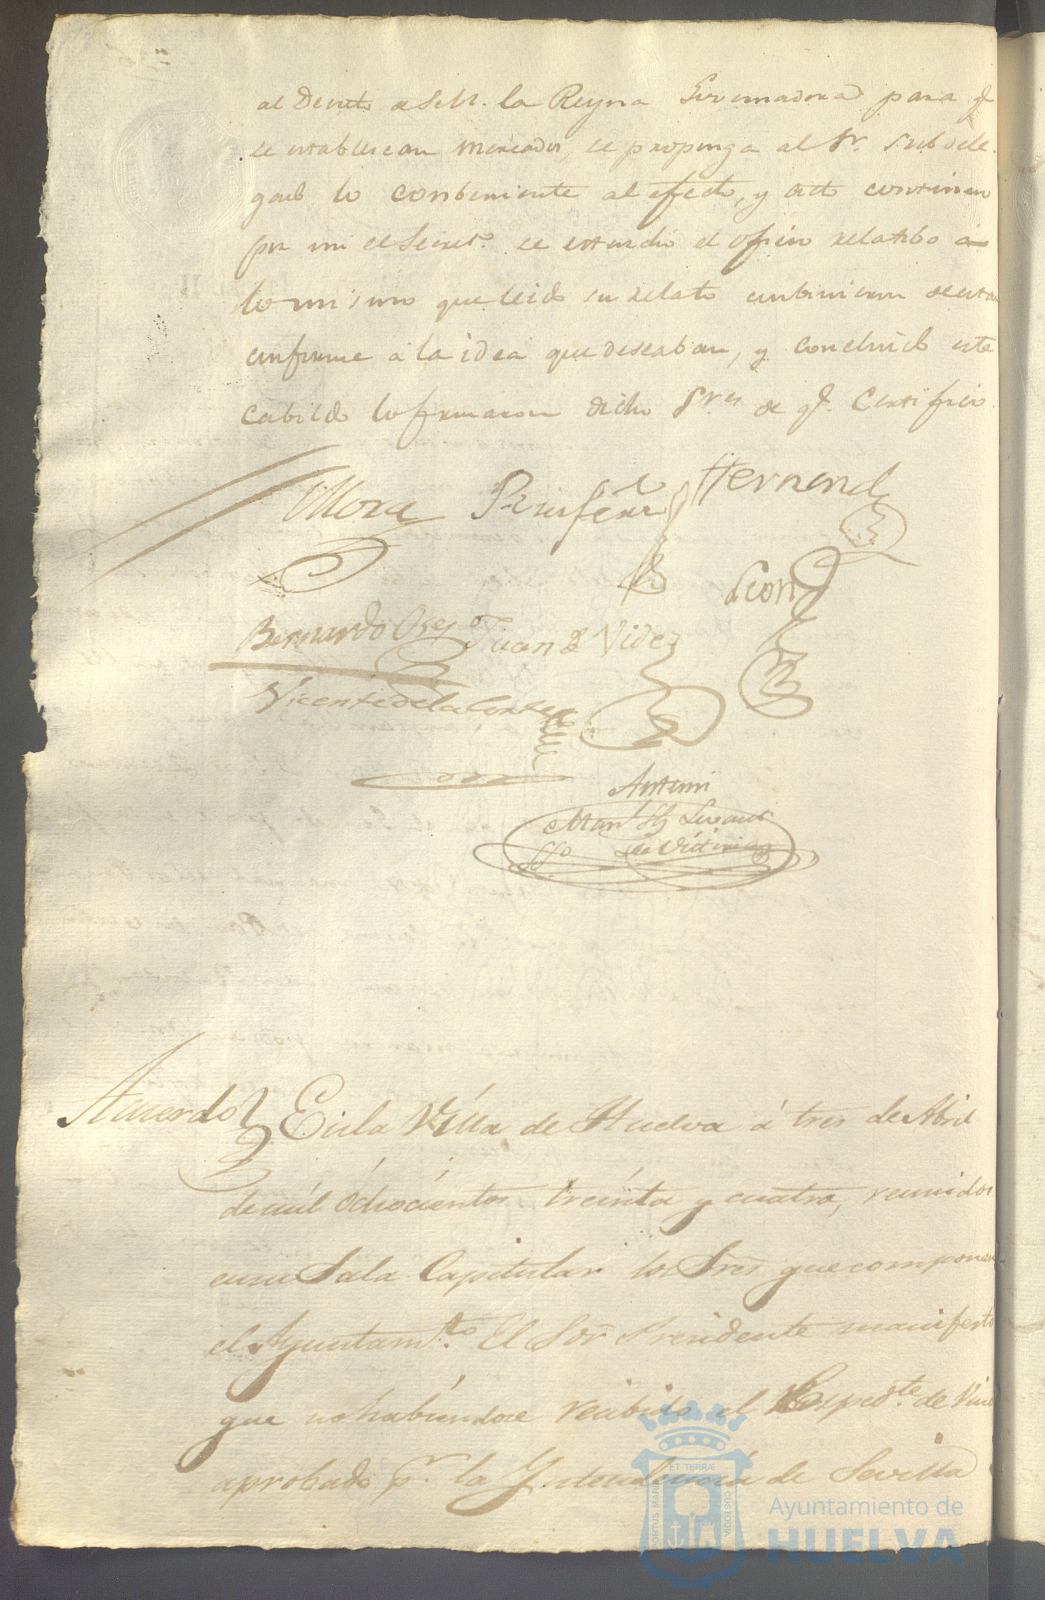 al Decreto de S.M. la Reyna Governadora para q.
se establescan Mercados, se proponga al Sr. Subdele-
gado lo combeniente al efecto, y acto continuo
por mi el Secret.o se estendio el oficio relatibo a
lo mismo que leido su relato combinieron se estar
conforme a la idea que deseaban, y concluido este
Cabildo lo firmaron dicho Sres de q. Certifico
Mora Hernand
Leon
Bernardo Juan de Videz
Vicente de la Corte
Antem
Man.l
Sso
Acuerdo En la Villa de Huelva á tres de Abril
de mil óchocientos treinta y cuatro, reunidos
en su Sala Capitular los Sres que componen
el Ayuntam.to El Sor Presidente manifesto
que no habiendose recibido el Exped.te de
aprobado p.r la Intendencia de Sevilla
PORTUS MARIS ET TERRÆ CUSTODIA
Ayuntamiento de
HUELVA